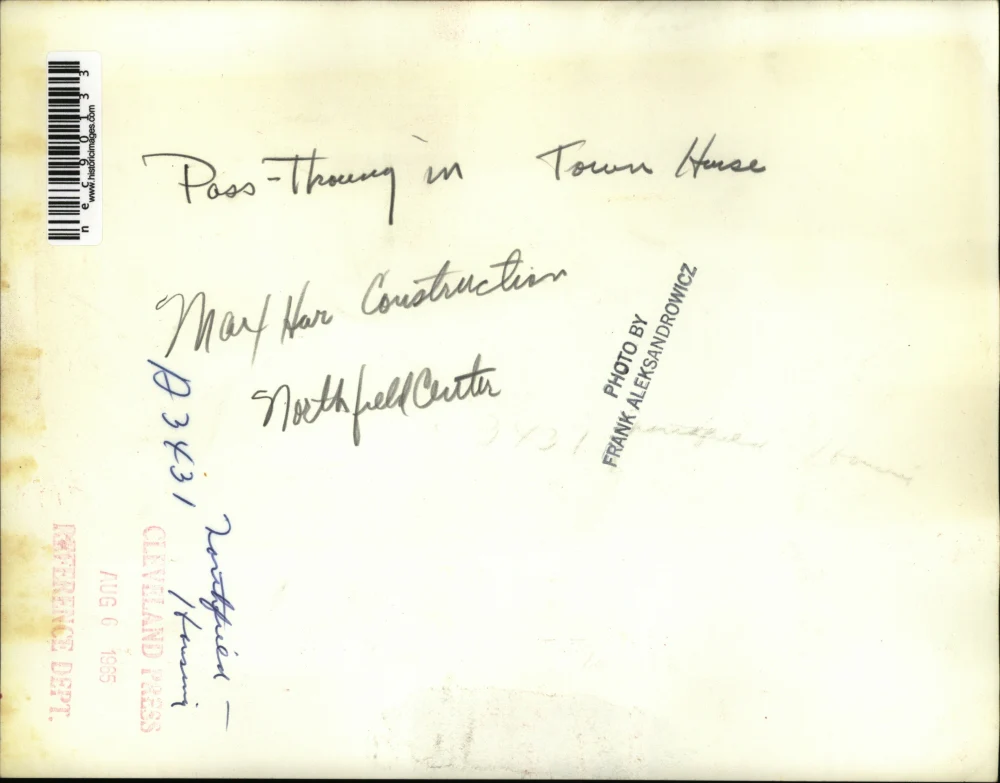 nec90133
www.historicimages.com
Pass-Throung in Town House
Mar/Har Construction
Northfield Center
PHOTO BY
FRANK ALEKSANDROWICZ
A3431
Northfield -
Housing
3431 Northfield Housing
CLEVELAND PRESS
AUG 6 1965
REFERENCE DEPT.